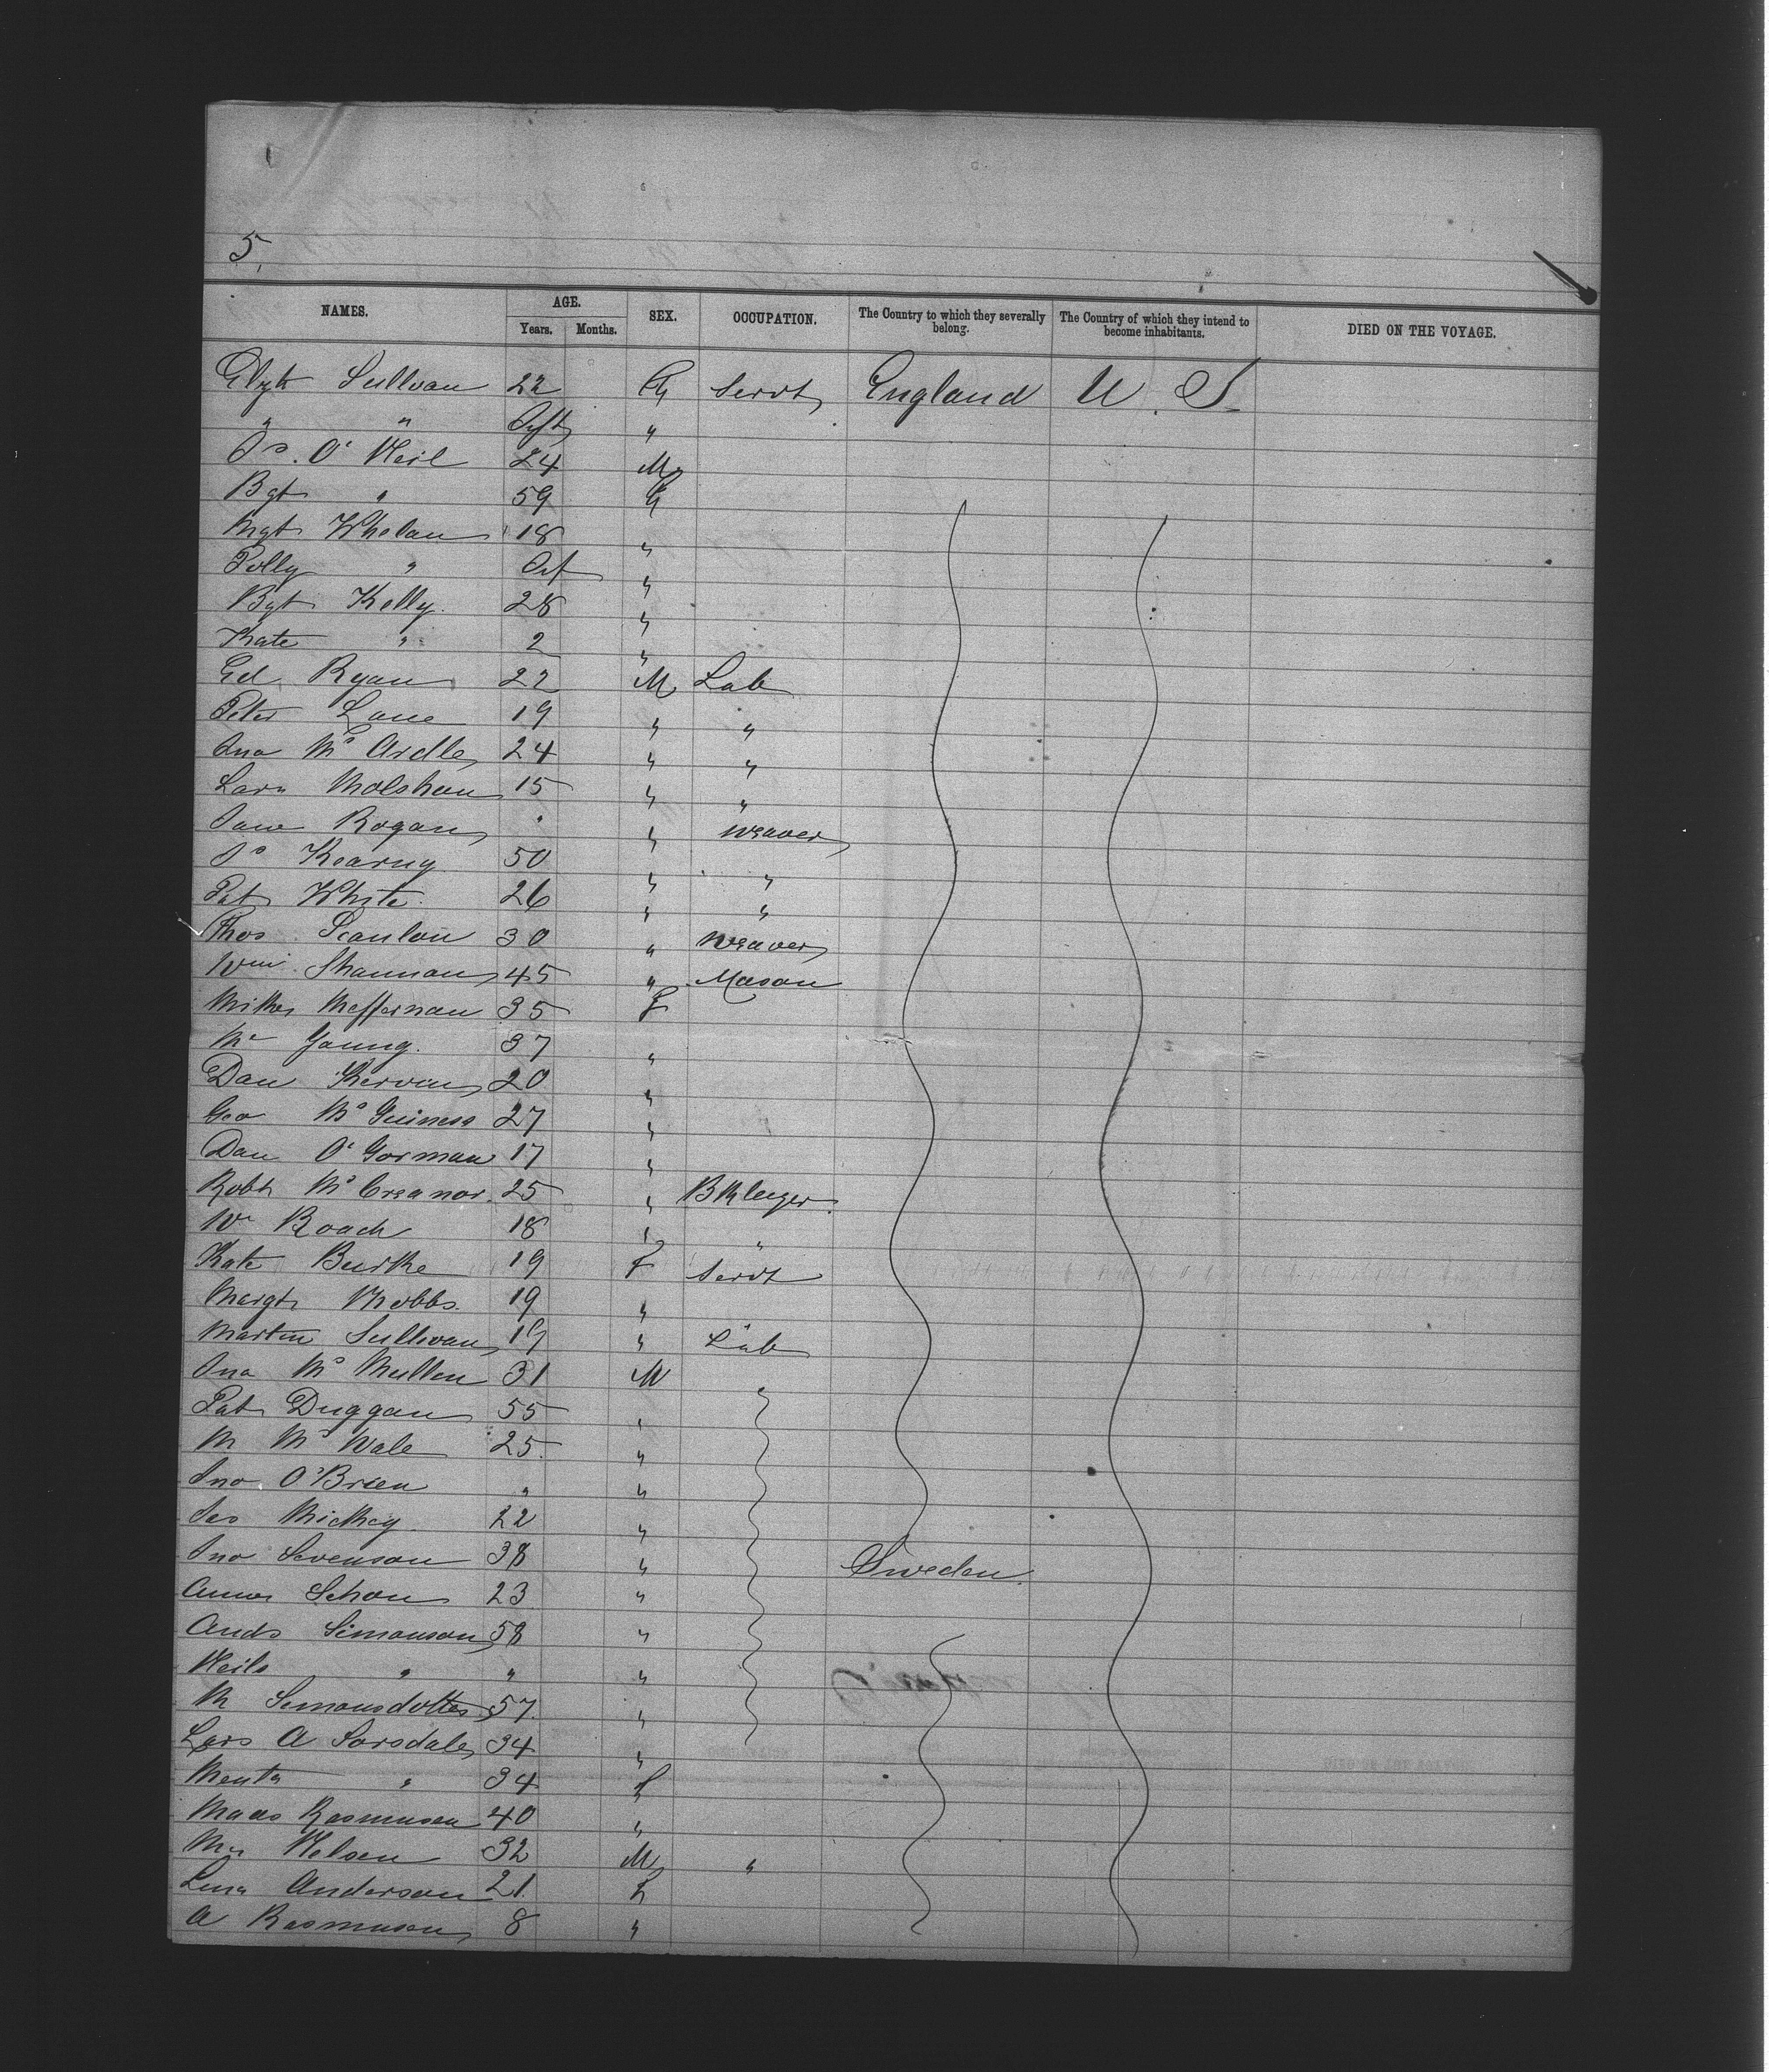 5,
NAMES. AGE. SEX. OCCUPATION. The Country to which they severally belong. The Country of which they intend to become inhabitants. DIED ON THE VOYAGE.
Years. Months.
Elizth Sullivan 22 F Servt England U.S.
" " Inft "
Js. O'Neil 24 M
Bgt " 59 F
Mgt Whelan 18 "
Polly " Inf "
Bgt Kelly 28 "
Kate " 2 "
Ed Ryan 22 M Lab
Peter Lane 19 " "
Jno McArdle 24 " "
15 " "
Rogan " " Weaver
Js Kearny 50 " "
Pat White 26 " "
Thos Scanlon 30 " Weaver
Wm Shannon 45 " Mason
Heffernan 35 F
Young 37 "
Dan Kerwin 20 "
Geo McGuiness 27 "
Dan O'Gorman 17 "
Robt McCreanor 25 "
Wm Roach 18 " "
Kate Burke 19 F Servt
Margt 19 "
Martin Sullivan 19 " Lab
Jno McMullen 31 M
Pat Duggan 55 "
M 25 "
Jno O'Brien " "
Jas Hickey 22 "
Jno Svenson 38 " Sweden
23 "
Ands Simonson 58 "
Neils " " "
M Simonsdotter 57 "
Lars A 34 "
" 34 F
Rasmusen 40 "
Nelsen 32 M "
Lena Anderson 21 F
A Rasmusen 8 "